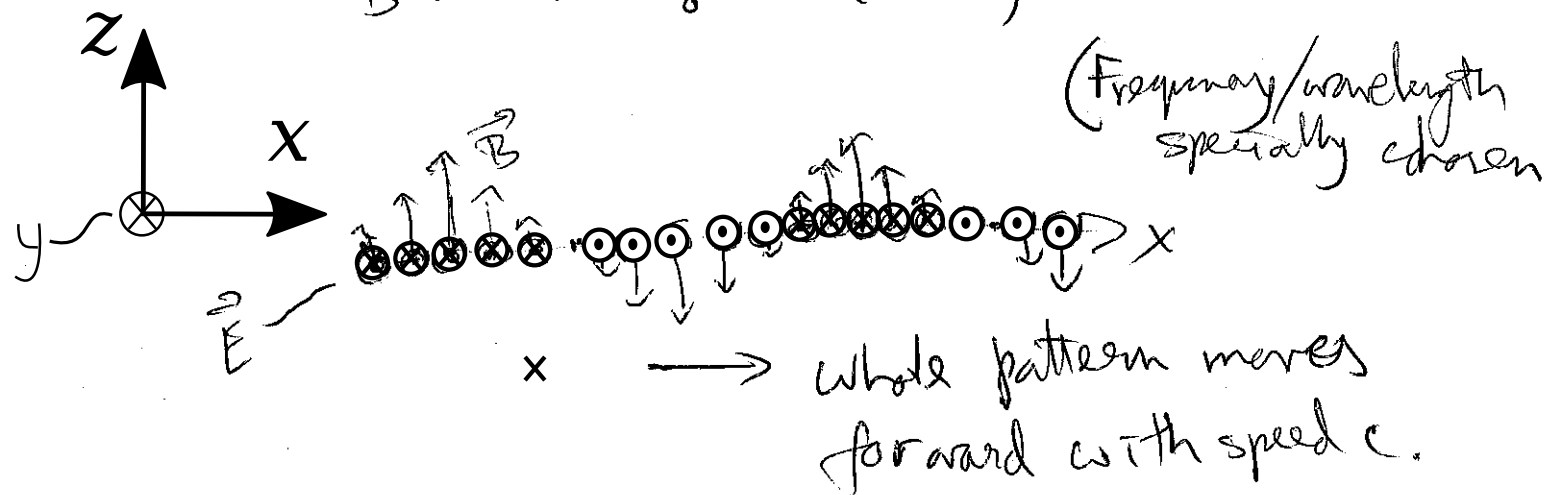 z
(Frequency/wavelength
specially chosen
x
B
y
x
E
x → whole pattern moves
forward with speed c.